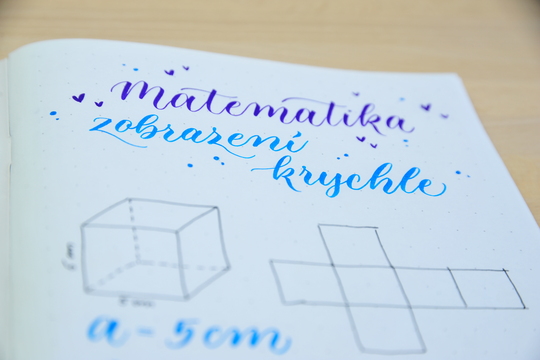 Matematika
zobrazení
krychle
a = 5 cm